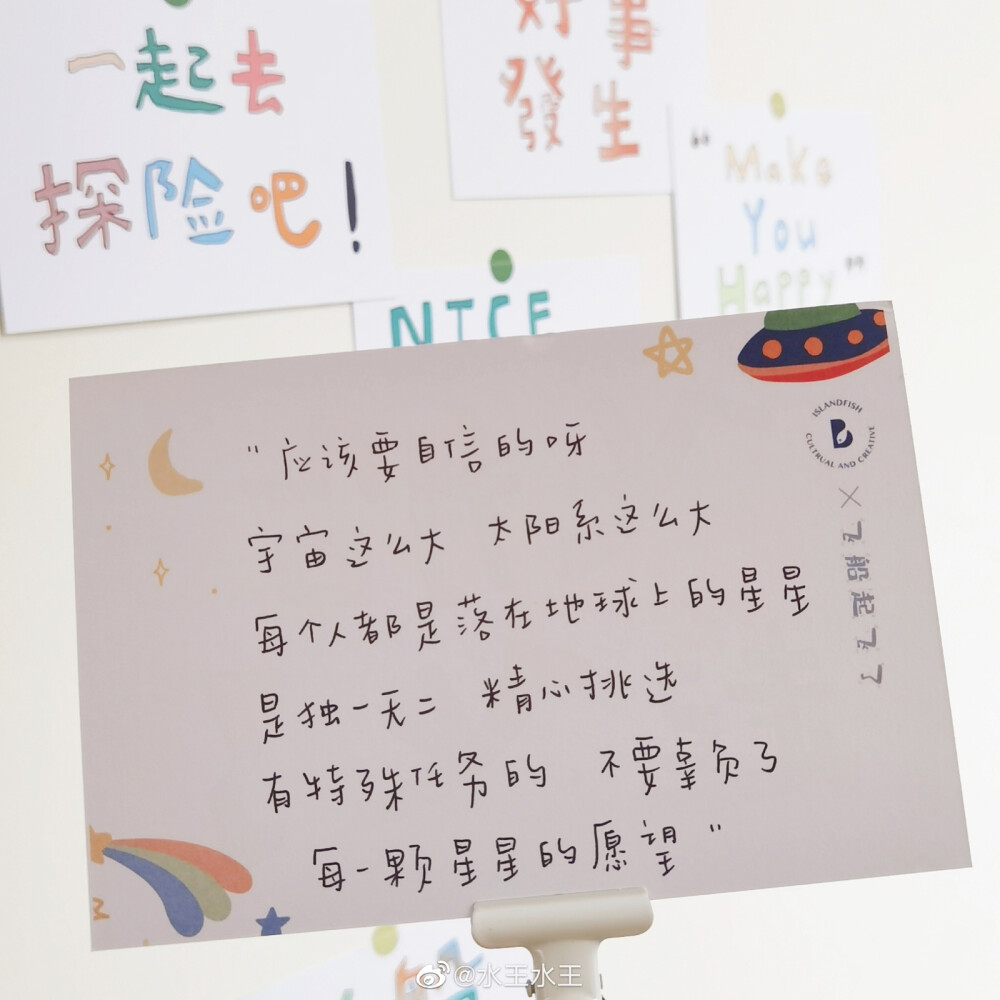 一起去
探险吧！
好事
發生
“Make
You
Happy”
NICE
ISLANDFISH
CULTRUAL AND CREATIVE
×飞船起飞了
"应该要自信的呀
宇宙这么大 太阳系这么大
每个人都是落在地球上的星星
是独一无二 精心挑选
有特殊任务的 不要辜负了
每一颗星星的愿望"
@水王水王